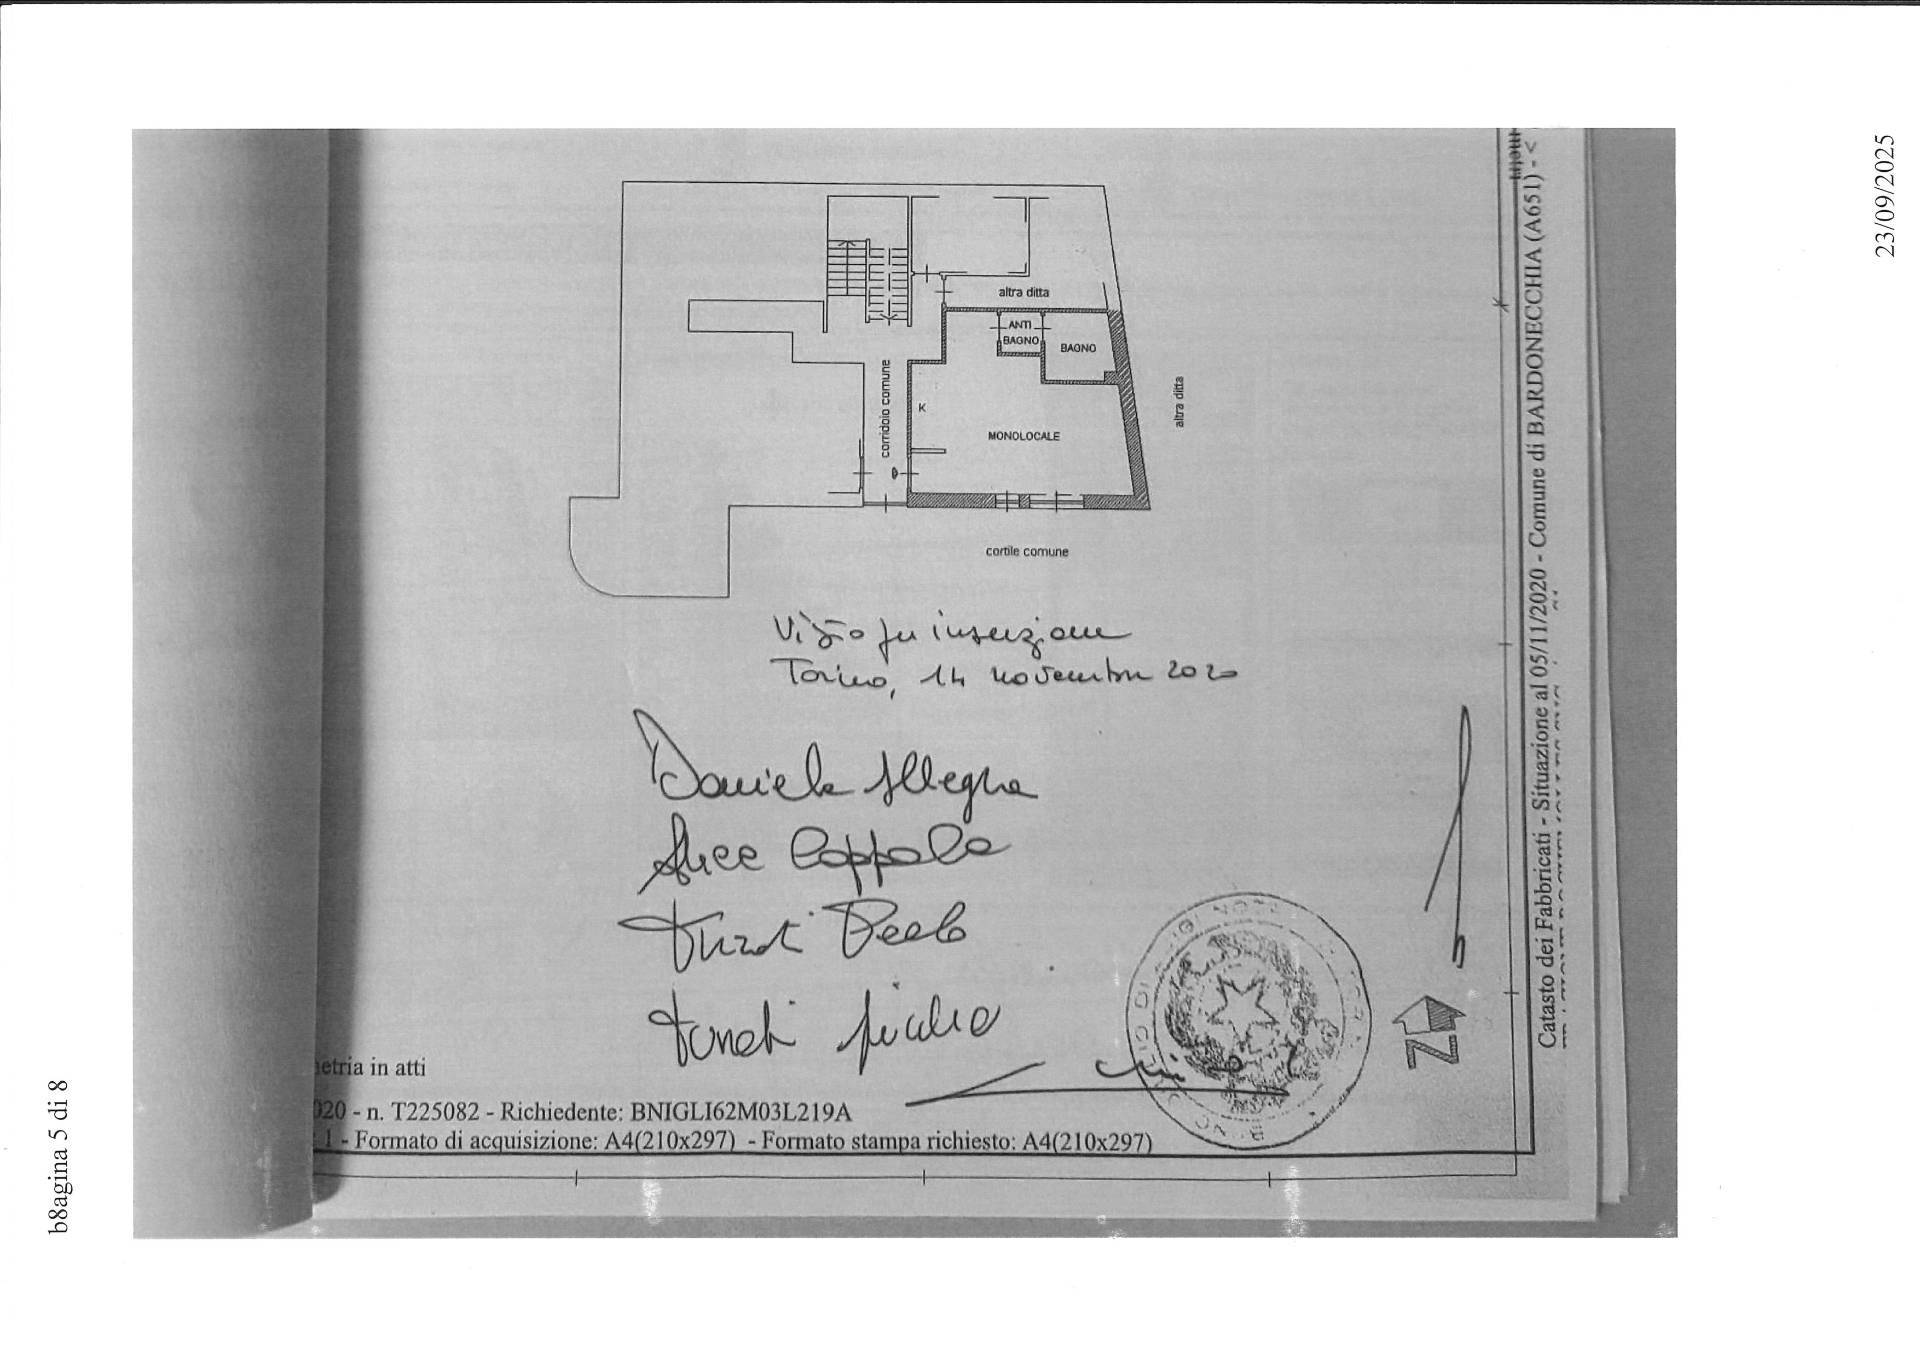 23/09/2025
altra ditta
ANTI
BAGNO
BAGNO
corridoio comune
K
MONOLOCALE
altra ditta
cortile comune
Visto per inserzione
Torino, 14 novembre 2020
Daniela Allegra
Alice Coppola
Catasto dei Fabbricati - Situazione al 05/11/2020 - Comune di BARDONECCHIA (A651) - <
N
etria in atti
020 - n. T225082 - Richiedente: BNIGLI62M03L219A
1 - Formato di acquisizione: A4(210x297) - Formato stampa richiesto: A4(210x297)
b8agina 5 di 8